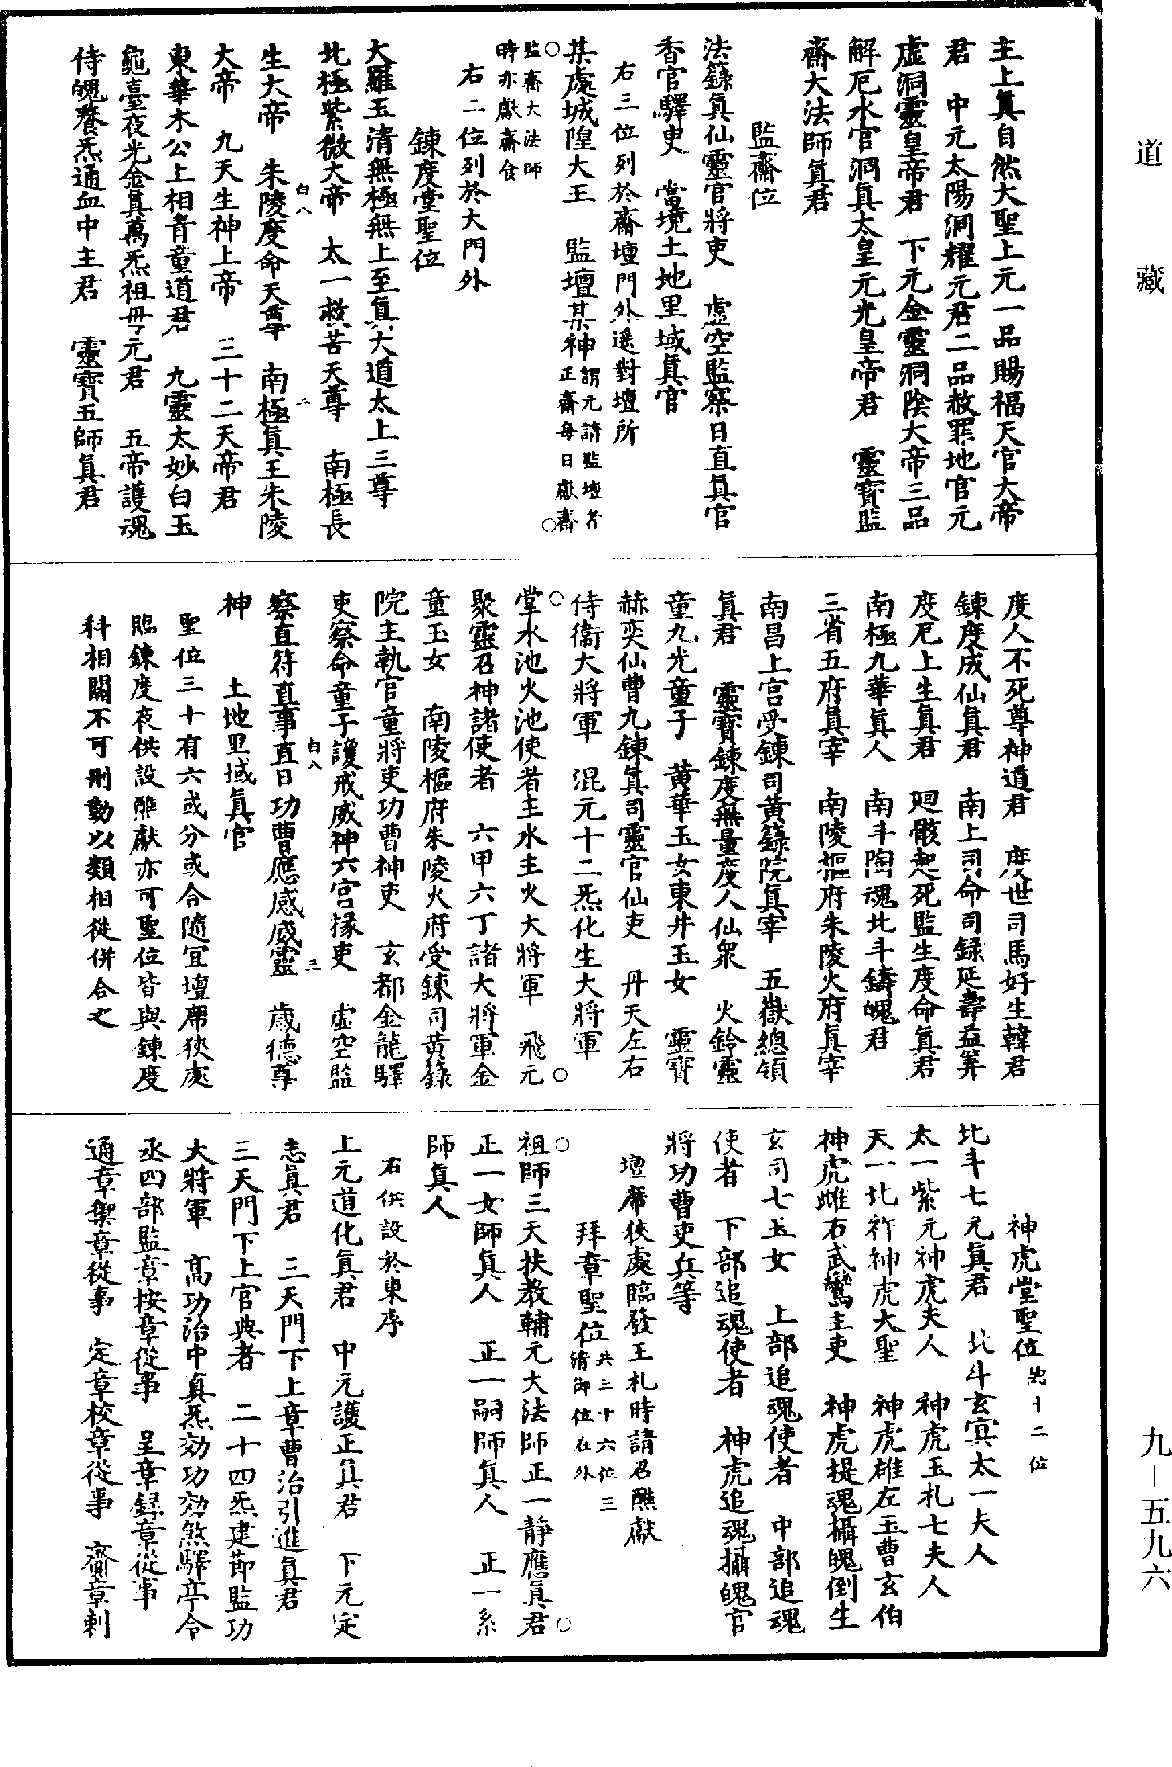 道藏
主上眞自然大聖上元一品賜福天官大帝
君　中元太陽洞耀元君二品赦罪地官元
虛洞靈皇帝君　下元金靈洞陰大帝三品
解厄水官洞眞太皇元光皇帝君　靈寳監
齋大法師眞君
監齋位
法籙眞仙靈官將吏　虛空監察日直眞官
香官驛吏　當境土地里域眞官
右三位列於齋壇門外遥對壇所
某處城隍大王　監壇某神謂元請監壇者正齋每日獻齋
監齋大法師時亦獻齋食
右二位列於大門外
錬度堂聖位
大羅玉清無極無上至眞大道太上三尊
北極紫微大帝　太一救苦天尊　南極長
白八　二
生大帝　朱陵度命天尊　南極眞王朱陵
大帝　九天生神上帝　三十二天帝君
東華木公上相青童道君　九靈太妙白玉
龜臺夜光金眞萬炁祖母元君　五帝護魂
侍魄養炁通血中主君　靈寳五師眞君
度人不死尊神道君　度世司馬好生韓君
錬度成仙眞君　南上司命司録延壽益筭
度厄上生眞君　廻骸起死監生度命眞君
南極九華眞人　南斗陶魂北斗鑄魄君
三省五府眞宰　南陵樞府朱陵火府眞宰
南昌上宮受錬司黃籙院眞宰　五嶽總領
眞君　靈寳錬度無量度人仙衆　火鈴靈
童九光童子　黃華玉女東井玉女　靈寳
赫奕仙曹九錬眞司靈官仙吏　丹天左右
侍衞大將軍　混元十二炁化生大將軍
堂水池火池使者主水主火大將軍　飛元
聚靈召神諸使者　六甲六丁諸大將軍金
童玉女　南陵樞府朱陵火府受錬司黃籙
院主執官童將吏功曹神吏　玄都金龍驛
吏察命童子護戒威神六宮掾吏　虛空監
白八　三
察直符直事直日功曹應感威靈　歲德尊
神　土地里域眞官
聖位三十有六或分或合隨宜壇席狹處
臨錬度夜供設醮獻亦可聖位皆與錬度
科相關不可刪動以類相從併合之
神虎堂聖位共十二位
北斗七元眞君　北斗玄冥太一夫人
太一紫元神虎夫人　神虎玉札七夫人
天一北祚神虎大聖　神虎雄左玉曹玄伯
神虎雌右武鸞主吏　神虎提魂攝魄倒生
玄司七玉女　上部追魂使者　中部追魂
使者　下部追魂使者　神虎追魂攝魄官
將功曹吏兵等
壇席狹處臨發玉札時請召醮獻
拜章聖位共三十六位三清御位在外
祖師三天扶教輔元大法師正一靜應眞君
正一女師眞人　正一嗣師眞人　正一系
師眞人
右供設於東序
上元道化眞君　中元護正眞君　下元定
志眞君　三天門下上章曹治引進眞君
三天門下上官典者　二十四炁建節監功
大將軍　高功治中眞炁効功効煞驛亭令
丞四部監章按章從事　呈章録章從事
通章禦章從事　定章校章從事　齎章剌
九－五九六